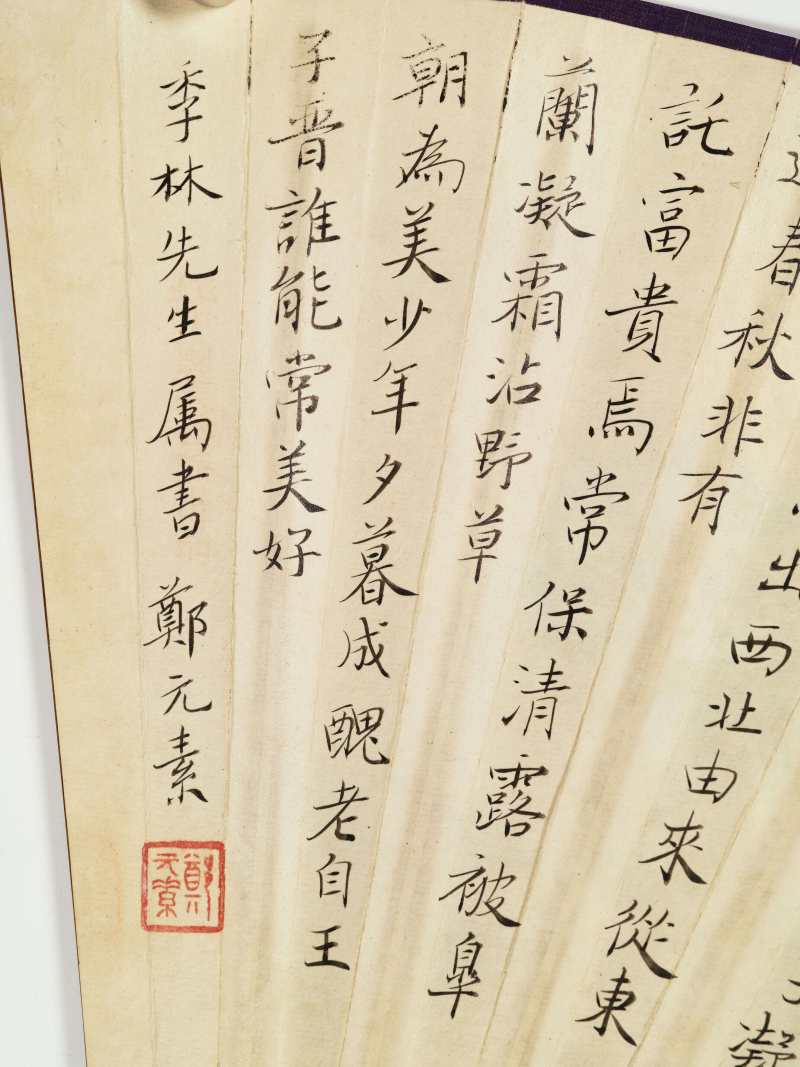 出西北由來從東
春秋非有
託富貴焉常保清露被皋
蘭凝霜沾野草
朝為美少年夕暮成醜老自王
子晉誰能常美好
季林先生属書 鄭元素
鄭元素